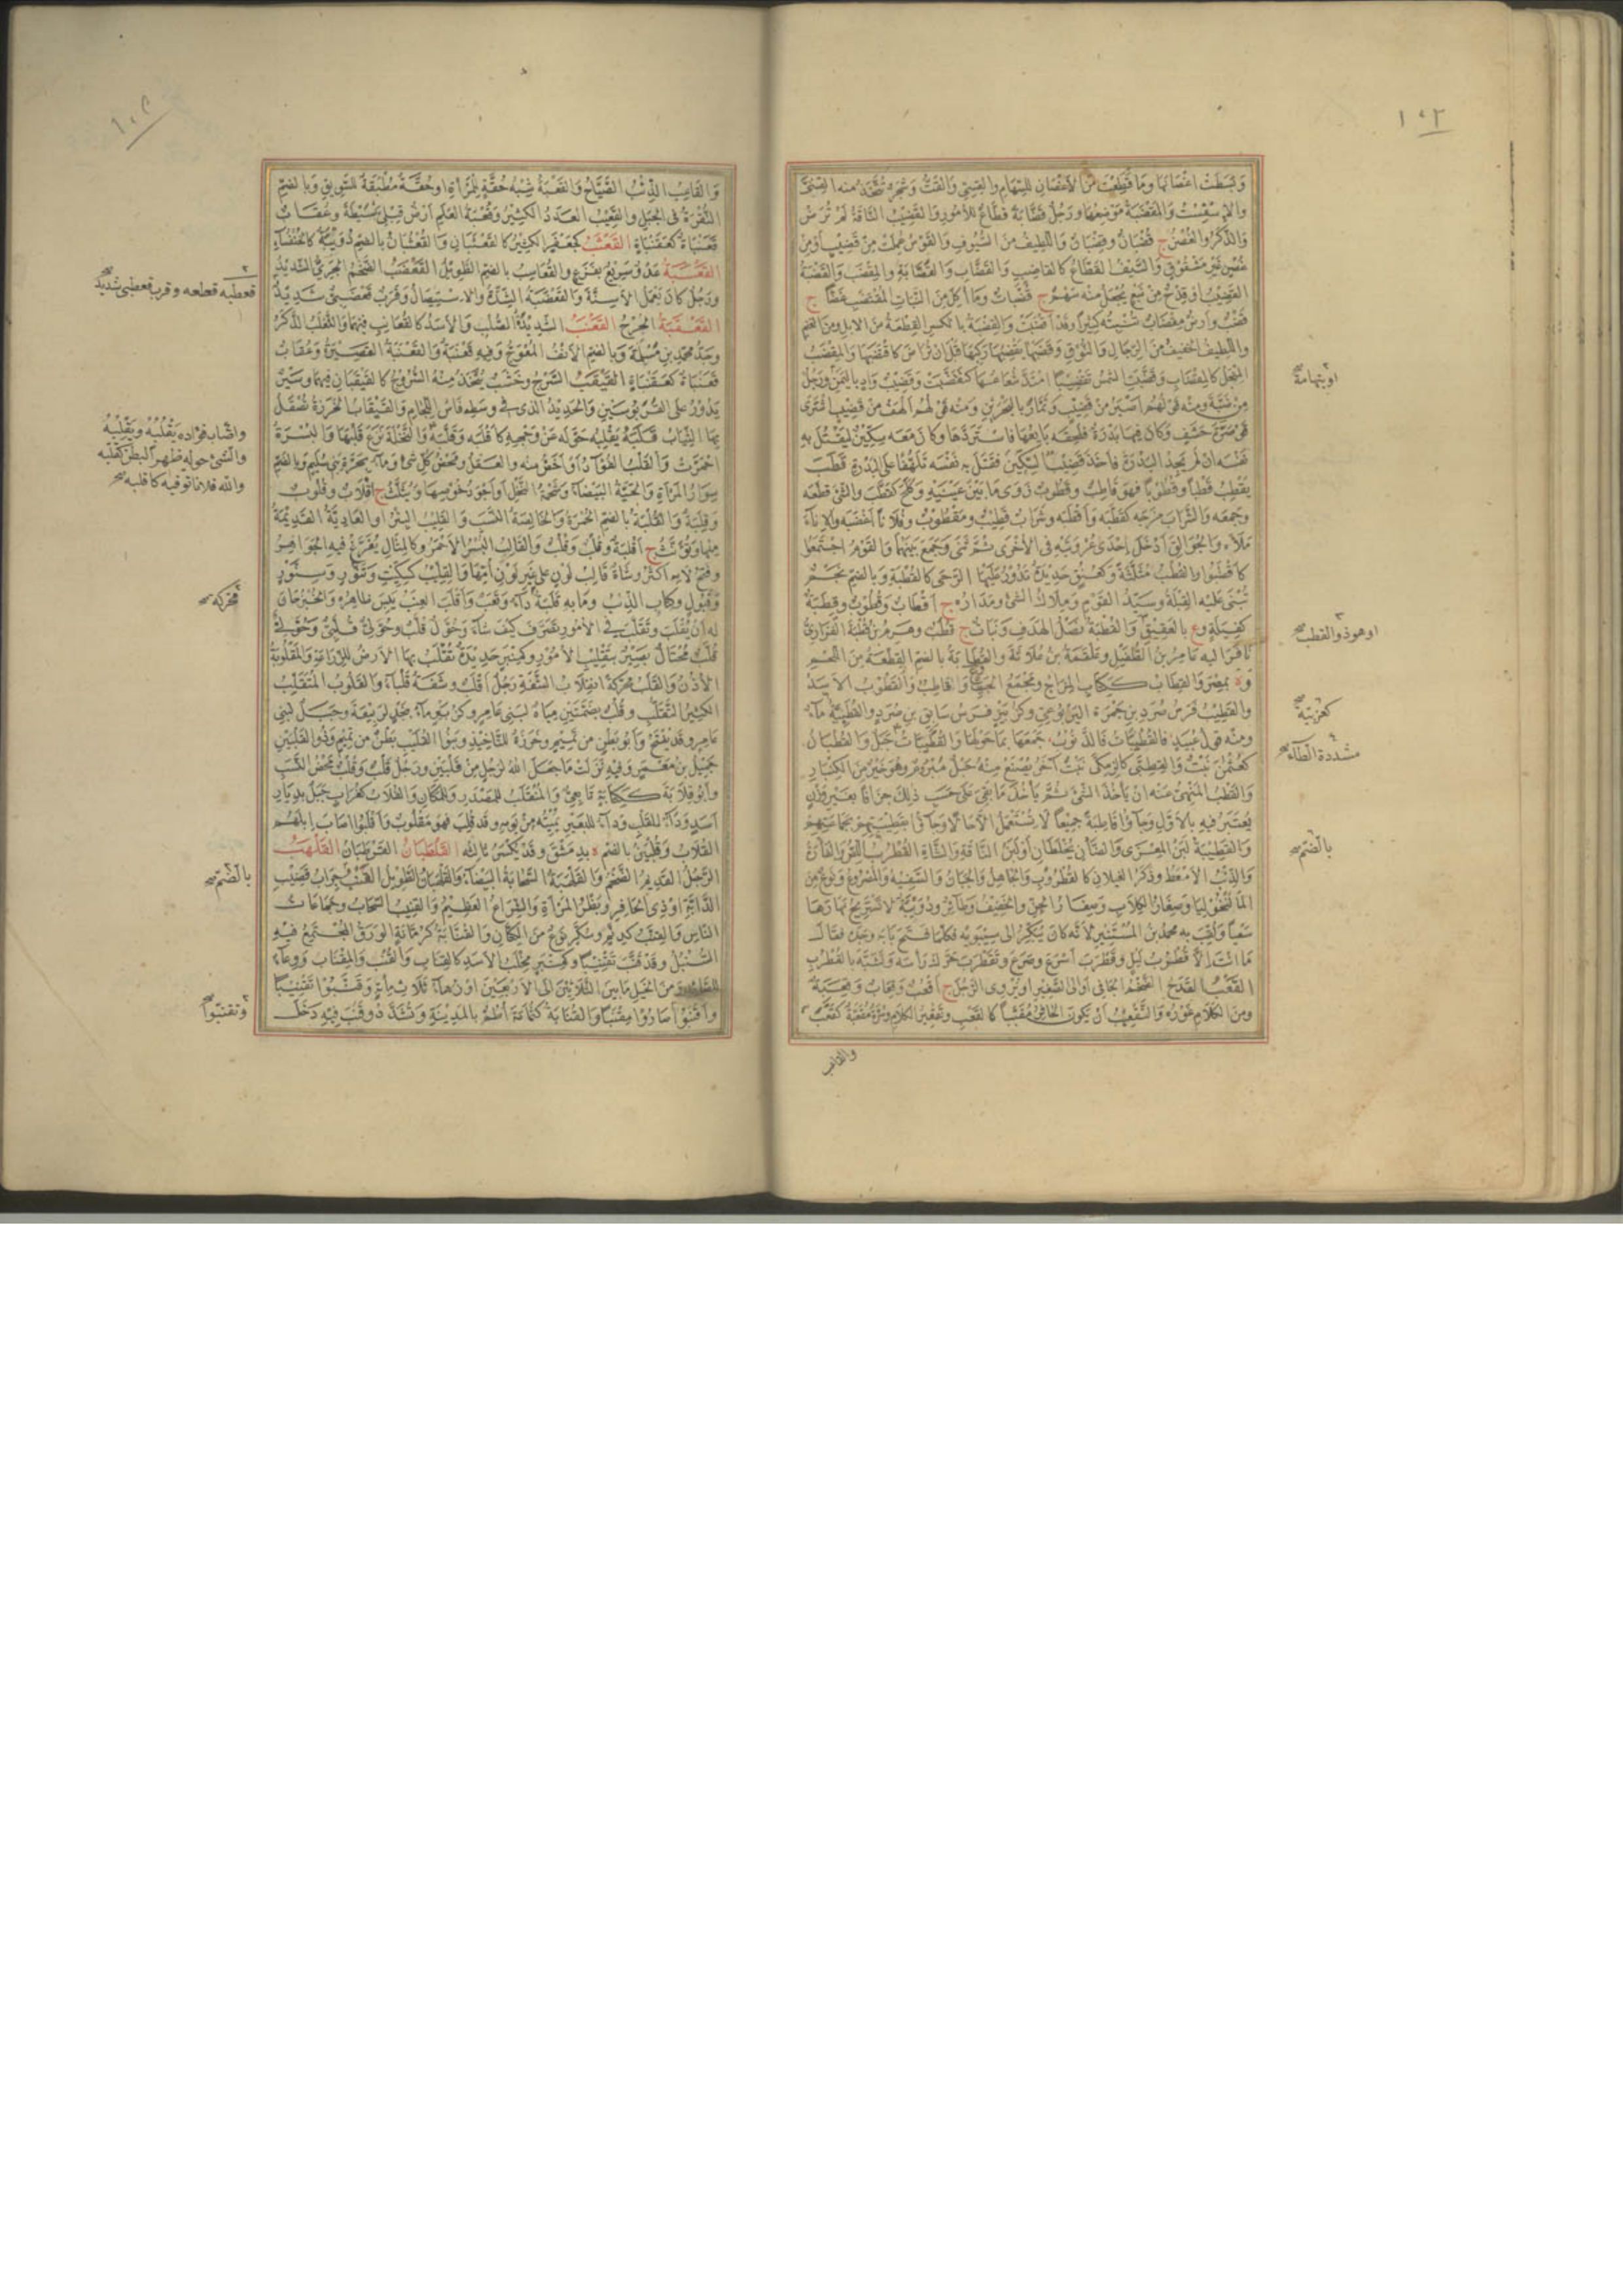 ١٠٢
وما قطعت من الأغصان للسهام والقسي والقت وشجرة تتخذ منه القسي
والإسفست والمقضبة موضعها ورجل قضابة قطاع للأمور والقضيب الناقة لم ترض
والذكر والغصن ج قضبان وقضبان واللطيف من السيوف والقوس عملت من قضيب أو من
غصن غير مشقوق والسيف القطاع كالقاضب والقضاب والقضابة والمقضب والقضبة
القضيب أو قدح من نبع يجعل منه سهم ج قضبات وما أكل من النبات المقتضب غضا ج
قضب وأرض مقضاب تنبته كثيرا وقد أقضبت والقضبة بالكسر القطعة من الإبل ومن الغنم
والخفيف اللطيف من الرجال والنوق وقضبها يقضبها ركبها قبل أن تراض كاقتضبها والمقضب
المنجل كالمقضاب وقضبت الشمس تقضيبا امتد شعاعها كتقضبت وقضيب واد باليمن ورجل
من ضبة ومنه قولهم أصبر من قضيب وتمار بالبحرين ومنه قولهم ألهف من قضيب اشترى
قوصرة حشف وكان فيها بدرة فلحقه بايعها فاستردها وكان معه سكين ليقتل به
نفسه إن لم يجد البدرة فأخذ قضيب السكين فقتل به نفسه تلهفا على البدرة قطب
يقطب قطبا وقطوبا فهو قاطب وقطوب زوى ما بين عينيه وكلح كقطب والشئ قطعه
وجمعه والشراب مزجه كقطبه وأقطبه وشراب قطيب ومقطوب وفلانا أغضبه والإناء
ملأه والجوالق أدخل إحدى عروتيه في الأخرى ثم ثنى وجمع بينهما والقوم اجتمعوا
كأقطبوا والقطب مثلثة وكعنق حديدة تدور عليها الرحى كالقطبة وبالضم نجم
تبنى عليه القبلة وسيد القوم وملاك الشئ ومداره ج أقطاب وقطوب وقطبة
كفيلة وع بالعقيق والقطبة نصل الهدف ونبات ج قطب وهرم بن قطبة الفزاري
نافر إليه عامر بن الطفيل وعلقمة بن علاثة والقطابة بالضم القطعة من اللحم
وة بمصر والقطاب ككتاب المزاج ومجمع الجيب والقاطب والقطوب الأسد
والقطيب فرس صرد بن حمزة اليربوعي وكزبير فرس سابق بن صرد والقطبية ماء
ومنه قول عبيد فالقطبيات فالذنوب جمعها بما حولها والقطبيات جبل والقطبان
كعثمن نبت والقطبى كالزمكى نبت آخر يصنع منه حبل مبرم وهو خير من الكنبار
والقطب المنهى عنه أن يأخذ الشئ ثم يأخذ ما بقي على حسب ذلك جزافا بغير وزن
يعتبر فيه بالأول وجاؤا قاطبة جميعا لا تستعمل إلا حالا وجاؤا بقطيبتهم بجماعتهم
والقطيبة لبن المعزى والضأن يخلطان أو لبن الناقة والشاة القطرب اللص والفأرة
والذئب الأمعط وذكر الغيلان كالقطروب والجاهل والجبان والسفيه والمصروع ونوع من
الماليخوليا وصغار الكلاب وصغار الجن والخفيف وطائر ودويبة لا تستريح نهارها
سعيا ولقب به محمد بن المستنير لأنه كان يبكر إلى سيبويه فكلما فتح بابه وجده فقال
ما أنت إلا قطرب ليل وقطرب أسرع وصرع وتقطرب حرك رأسه وتشبه بالقطرب
القعب القدح الضخم الجافي أو إلى الصغر أو يروي الرجل ج أقعب وقعاب وقعبة
ومن الكلام غوره والتقعيب أن يكون الحافر مقببا كالقعب وتقعير الكلام وسرة مقعبة كقعب
والقاعب
او بتهامة صح
او هو ذو القطب صح
كعربية صح
مشددة الطاء صح
بالضم صح
والقاعب الذئب الصياح والقعبة شبه حقة للمرأة أو حقة مطبقة للسويق وبالضم
النقرة في الجبل والقعيب العدد الكثير وقحمة العلم أرض قبلي بسيطة وعقاب
قعنباة كعقنباة القعثب كجعفر الكثير كالقعثبان والقعثبان بالضم دويبة كالخنفساء
القعسبة عدو سريع بفزع والقعاسب بالضم الطويل القعضب الضخم الجرئ الشديد
ورجل كان يعمل الأسنة والقعضبة الشدة والاستيصال وقرب قعضبي شديد
القعنب الشديد الصلب والأسد كالقعانب فيهما والثعلب الذكر
وجد محمد بن مسلمة وبالضم الأنف المعوج وفيه قعنبة والقعنبة القصيرة وعقاب
قعنباة كعقنباة القيقب السرج وخشب يتخذ منه السروج كالقيقبان فيهما وسير
يدور على القربوسين والحديد الذي في وسطه فأس اللجام والقيقاب الخرزة تصقل
بها الثياب قلبه يقلبه حوله عن وجهه كأقلبه وقلبه والنخلة نزع قلبها والبسرة
احمرت والقلب الفؤاد أو أخص منه والعقل ومحض كل شئ وماء بحرة بني سليم وبالضم
سوار المرأة والحية البيضاء وشحمة النخل أو أجود خوصها ويثلث ج أقلاب وقلوب
وقلبة والقلبة بالضم الحمرة والخالصة النسب والقليب البئر أو العادية القديمة
منها ويؤنث ج أقلبة وقلب وقلب والقالب البسر الأحمر وكالمثال يفرغ فيه الجواهر
وفتح لامه أكثر وشاة قالب لون على غير لون أمها والقليب كسكيت وتنور وسنور
وقبول وكتاب الذئب وما به قلبة داء وتعب وأقلب العنب يبس ظاهره والخبز حان
له أن يقلب وتقلب في الأمور تصرف كيف شاء وحول قلب وحولي قلبي وحولي
قلب محتال بصير بتقليب الأمور وكمنبر حديدة تقلب بها الأرض للزراعة والمقلوبة
الأذن والقلب محركة انقلاب الشفة رجل أقلب وشفة قلباء والقلوب المتقلب
الكثير التقلب وقلب بضمتين مياه لبني عامر وكزبير ماء بنجد لربيعة وجبل لبني
عامر وقد يفتح وأبو بطن من تميم وخرزة للتأخيذ وبنو القليب بطن من تميم وذو القلبين
جميل بن معمر وفيه نزلت ما جعل الله لرجل من قلبين ورجل قلب وقلب محض النسب
وأبو قلابة ككتابة تابعي والمنقلب للمصدر والمكان والقلاب كغراب جبل بديار
أسد وداء للقلب وداء للبعير يميته من يومه وقد قلب فهو مقلوب وأقلبوا أصاب إبلهم
القلاب وقلبين بالضم ة بدمشق وقد يكسر ثالثه القلطبان القرطبان القلهب
الرجل القديم الضخم والقلهبة السحابة البيضاء والقلهبان الطويل القنب جراب قضيب
الدابة أو ذي الحافر وبظر المرأة والشراع العظيم والقنيب السحاب وجماعات
الناس والقنب كدنم وسكر نوع من الكتان والقنابة كرمانة الورق المجتمع فيه
السنبل وقد قنب تقنيبا وكمنبر مخلب الأسد كالقناب والقنب والمقناب ووعاء
ومن الخيل ما بين الثلاثين إلى الأربعين أو زهاء ثلاثمائة وقنبوا تقنيبا
وأقنبوا صاروا مقنبا والقنابة كثمامة أطم بالمدينة وتشدد وقنب فيه دخل
قعطبه قطعه وقرب قعطبي شديد صح
واصاب فؤاده يقلبه ويقلبه
والشئ حوله ظهرا لبطن كقلبه
والله فلانا توفيه كاقلبه صح
محركة صح
بالضم صح
وتقنبوا صح